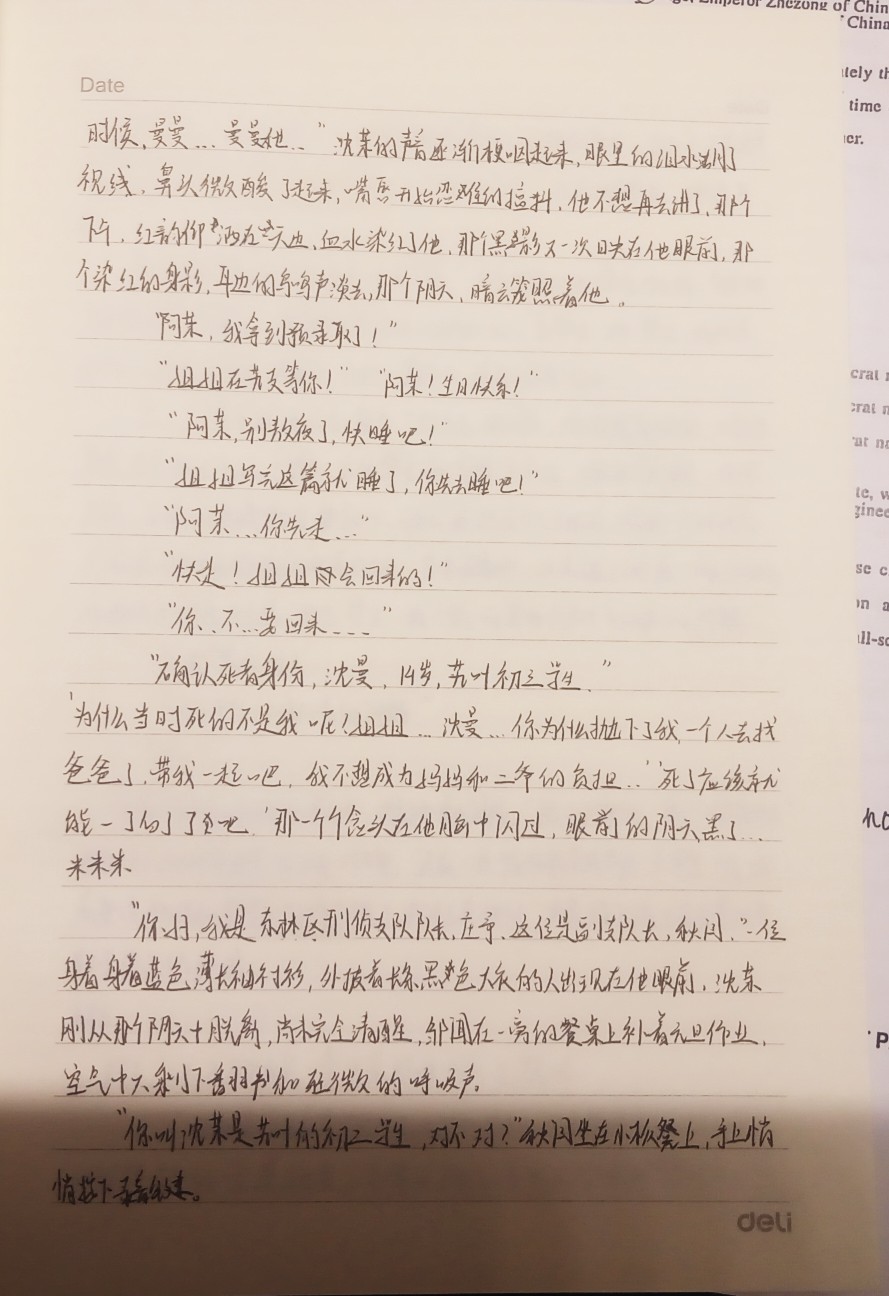 Emperor Zhezong of Chin
China
Date
tely th
time
er.
时候，曼曼…曼曼她…”沈茉的声音逐渐哽咽起来，眼里的泪水湖了
视线，鼻头微微酸了起来，嘴唇开始的，他不想再去讲了，那个
下午，红的洒在天边，血水染红了他，那个黑影又一次映在他眼前，那
个染红的身影，耳边的鸣声淡去，那个阴天，暗云笼照着他。
“阿茉，我拿到预录取了！”
“姐姐在等你！” “阿茉！生日快乐！”
“阿茉，别熬夜了，快睡吧！”
“姐姐写完这篇就睡了，你先去睡吧！”
“阿茉…你先走…”
“快走！姐姐会回来的！”
“你..不…要回来…”
“确认死者身份，沈曼，14岁，苏叶初三学生。”
‘为什么当时死的不是我呢？姐姐…沈曼…你为什么抛下了我，一个人去找
爸爸了，带我一起吧，我不想成为妈妈和二爷的负担..’‘死了应该就
能一了百了了吧’那一个个念头在他脑中闪过，眼前的阴天黑了…
米米米
“你好，我是东林区刑侦支队队长，庄予，这位是副支队长，秋闵。”一位
身着身着蓝色薄长袖衬衫，外披着长黑色大衣的人出现在他眼前，沈茉
刚从那个阴天中脱离，尚未完全清醒，邹闻在一旁的餐桌上补着元旦作业，
空气中只剩下翻书和微微的呼吸声。
“你叫沈茉是苏叶的初二学生，对不对？”秋闵坐在小板凳上，手上悄
悄按下录音键。
deli
crat
crat
te, w
ginee
se c
on a
ll-sc